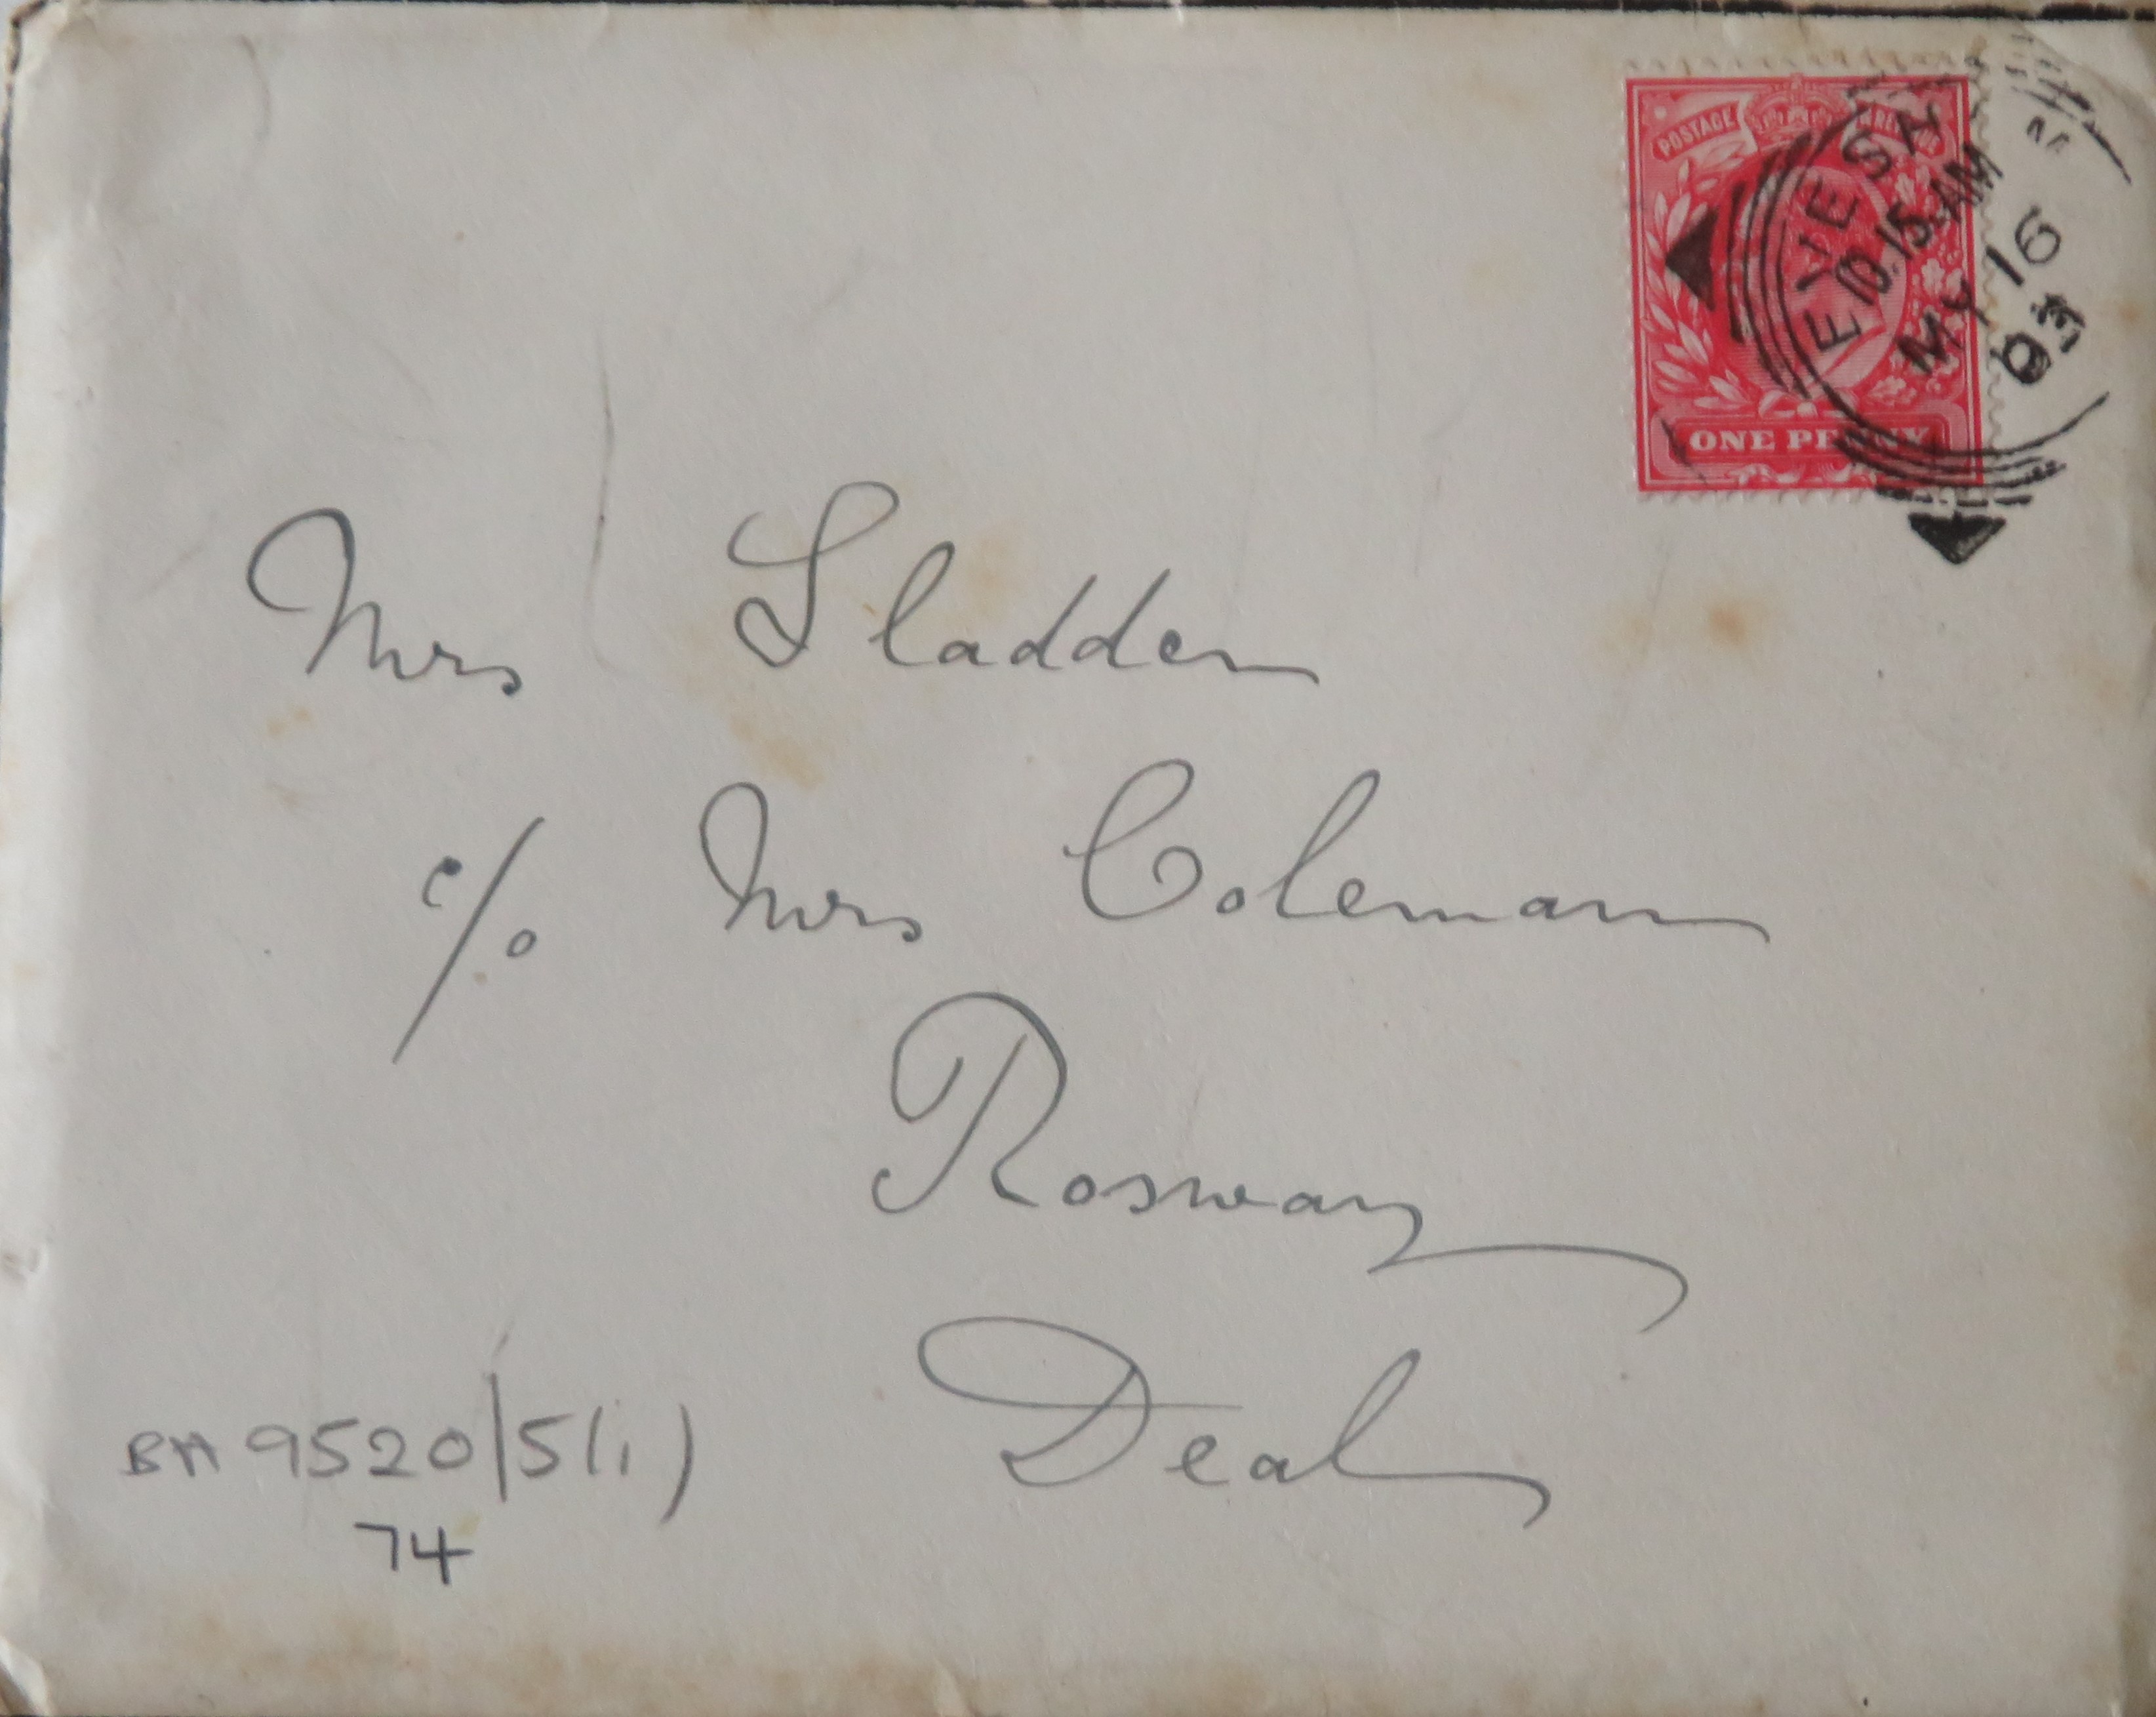 POSTAGE
ONE PENNY
EVESH M
10.15 AM
MY 16
03
Mrs Sladden
c/o Mrs Coleman
Rosway
Deal
BA 9520/5(i)
74